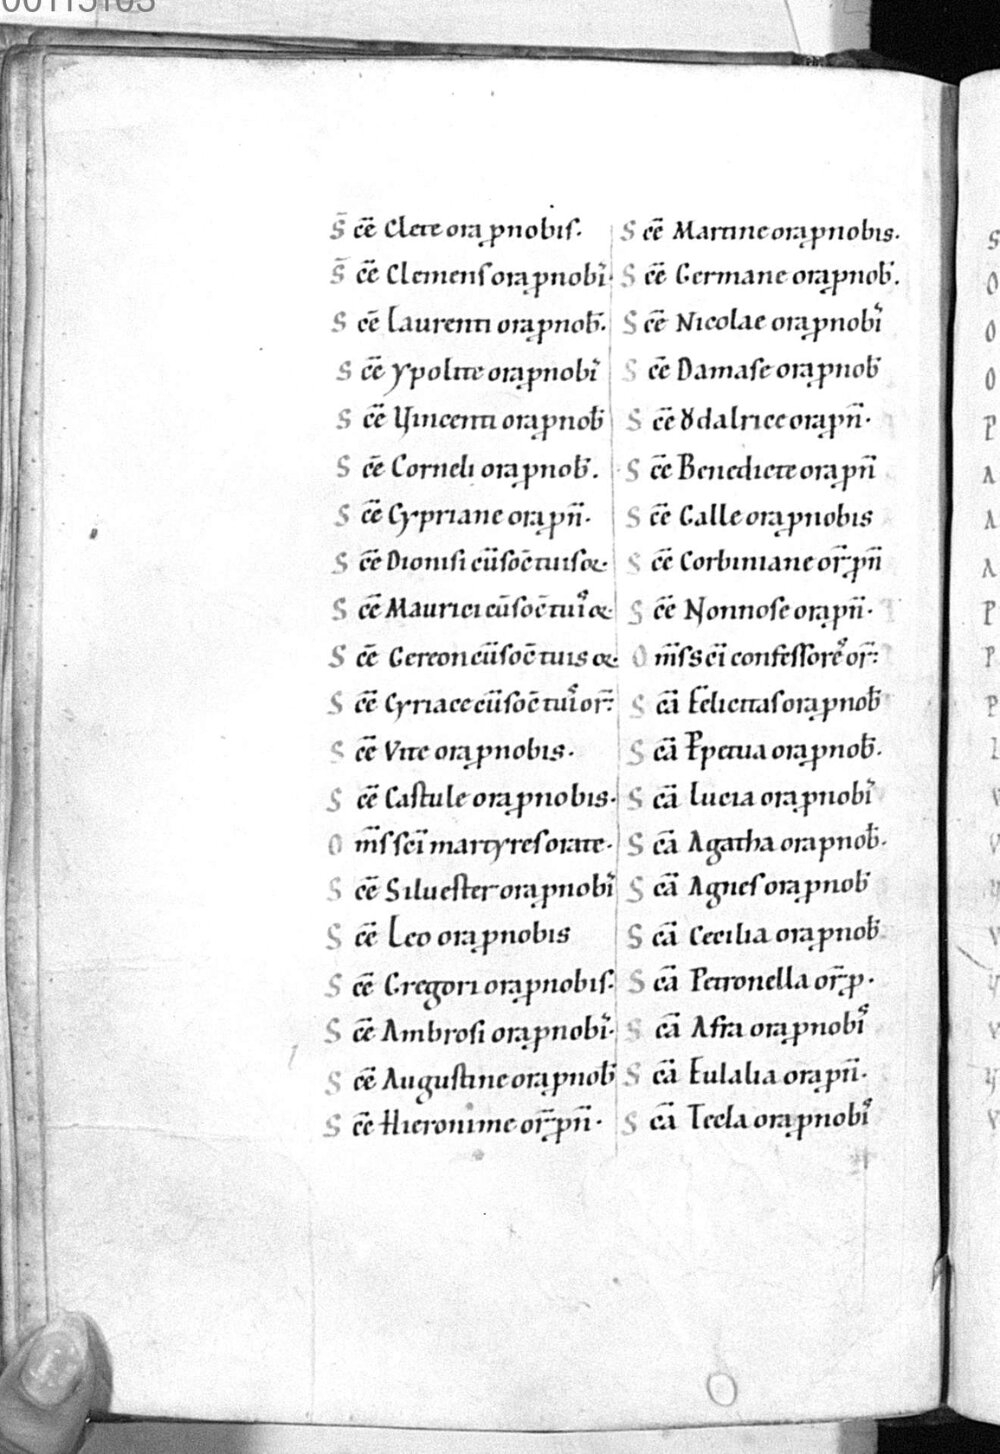 S̄ c̄e Clete ora ꝓnobis.
S̄ c̄e Clemens ora ꝓnobi᷒.
S c̄e Laurenti ora ꝓnob̄.
S c̄e ypolite ora ꝓnobi᷒
S c̄e Vincenti ora ꝓnob̄
S c̄e Corneli ora ꝓnob̄.
S c̄e Cypriane ora ꝓn̄.
S c̄e Dionisi cū soc̄ tuis oꝛ.
S c̄e Maurici cū soc̄ tui᷒ oꝛ.
S c̄e Gereon cū soc̄ tuis oꝛ.
S c̄e Cyriace cū soc̄ tui᷒ or̄:
S c̄e Vite ora ꝓnobis.
S c̄e Castule ora ꝓnobis.
O m̄s sc̄i martyres orate.
S c̄e Siluester ora ꝓnobi᷒
S c̄e Leo ora ꝓnobis
S c̄e Gregori ora ꝓnobis.
S c̄e Ambrosi ora ꝓnobi᷒.
S c̄e Augustine ora ꝓnob̄
S c̄e Hieronime or̄ ꝓn̄.
S c̄e Martine ora ꝓnobis.
S c̄e Germane ora ꝓnob̄.
S c̄e Nicolae ora ꝓnobi᷒
S c̄e Damase ora ꝓnob̄
S c̄e Ȣdalrice ora ꝓn̄.
S c̄e Benedicte ora ꝓn̄
S c̄e Galle ora ꝓnobis
S c̄e Corbiniane or̄ ꝓn̄
S c̄e Nonnose ora ꝓn̄.
O m̄s sc̄i confessore᷒ or̄:
S c̄a Felicitas ora ꝓnob̄
S c̄a Ꝑpetua ora ꝓnob̄.
S c̄a Lucia ora ꝓnobi᷒
S c̄a Agatha ora ꝓnob̄.
S c̄a Agnes ora ꝓnob̄
S c̄a Cecilia ora ꝓnob̄.
S c̄a Petronella or̄ ꝓ.
S c̄a Afra ora ꝓnobi᷒
S c̄a Eulalia ora ꝓn̄.
S c̄a Tecla ora ꝓnobi᷒